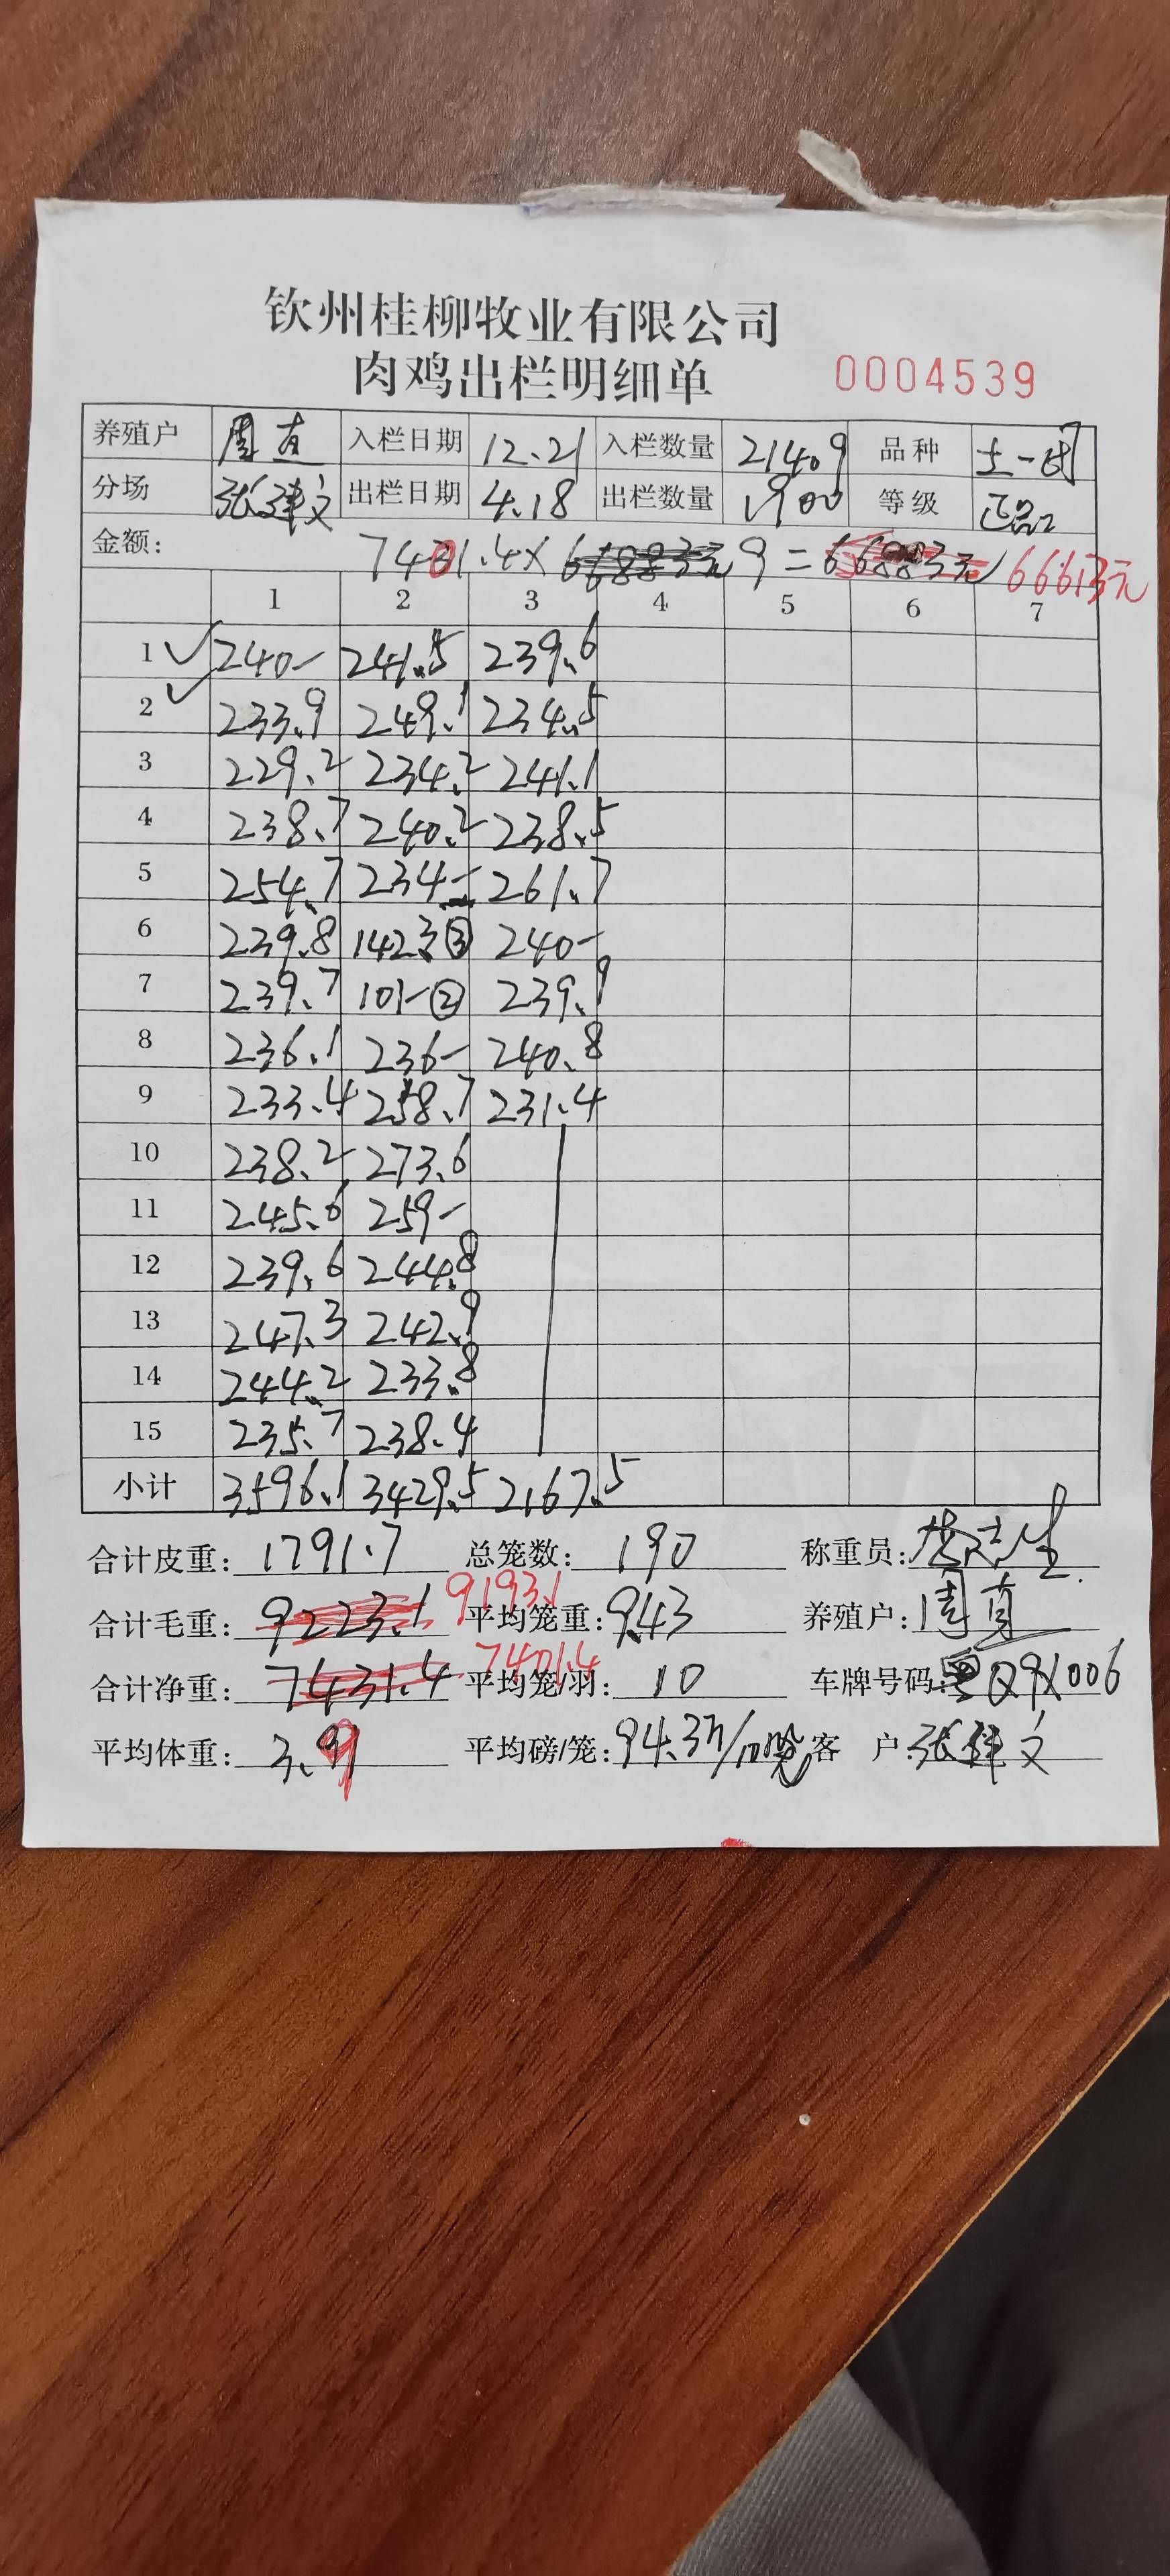 钦州桂柳牧业有限公司
肉鸡出栏明细单 0004539
养殖户 周直 入栏日期 12.21 入栏数量 21409 品种 土一
分场 张建文 出栏日期 4.18 出栏数量 1900 等级 正品
金额: 7401.4× 66883元 9=66883元 66613元
1 2 3 4 5 6 7
1 240- 241.5 239.6
2 233.9 249.1 234.5
3 229.2 234.2 241.1
4 238.7 240.2 238.5
5 254.7 234- 261.7
6 239.8 142.3③ 240-
7 239.7 101-② 239.9
8 236.1 236- 240.8
9 233.4 258.7 231.4
10 238.2 273.6
11 245.6 259-
12 239.6 244.8
13 247.3 242.9
14 244.2 233.8
15 235.7 238.4
小计 3596.1 3429.5 2167.5
合计皮重: 1791.7 总笼数: 190 称重员:
合计毛重: 9223.1 9193.1 平均笼重: 9.43 养殖户: 周直
合计净重: 7431.4 7401.4 平均笼/羽: 10 车牌号码: 粤Q9X006
平均体重: 3.9 平均磅/笼: 94.3斤/ 客 户: 张建文